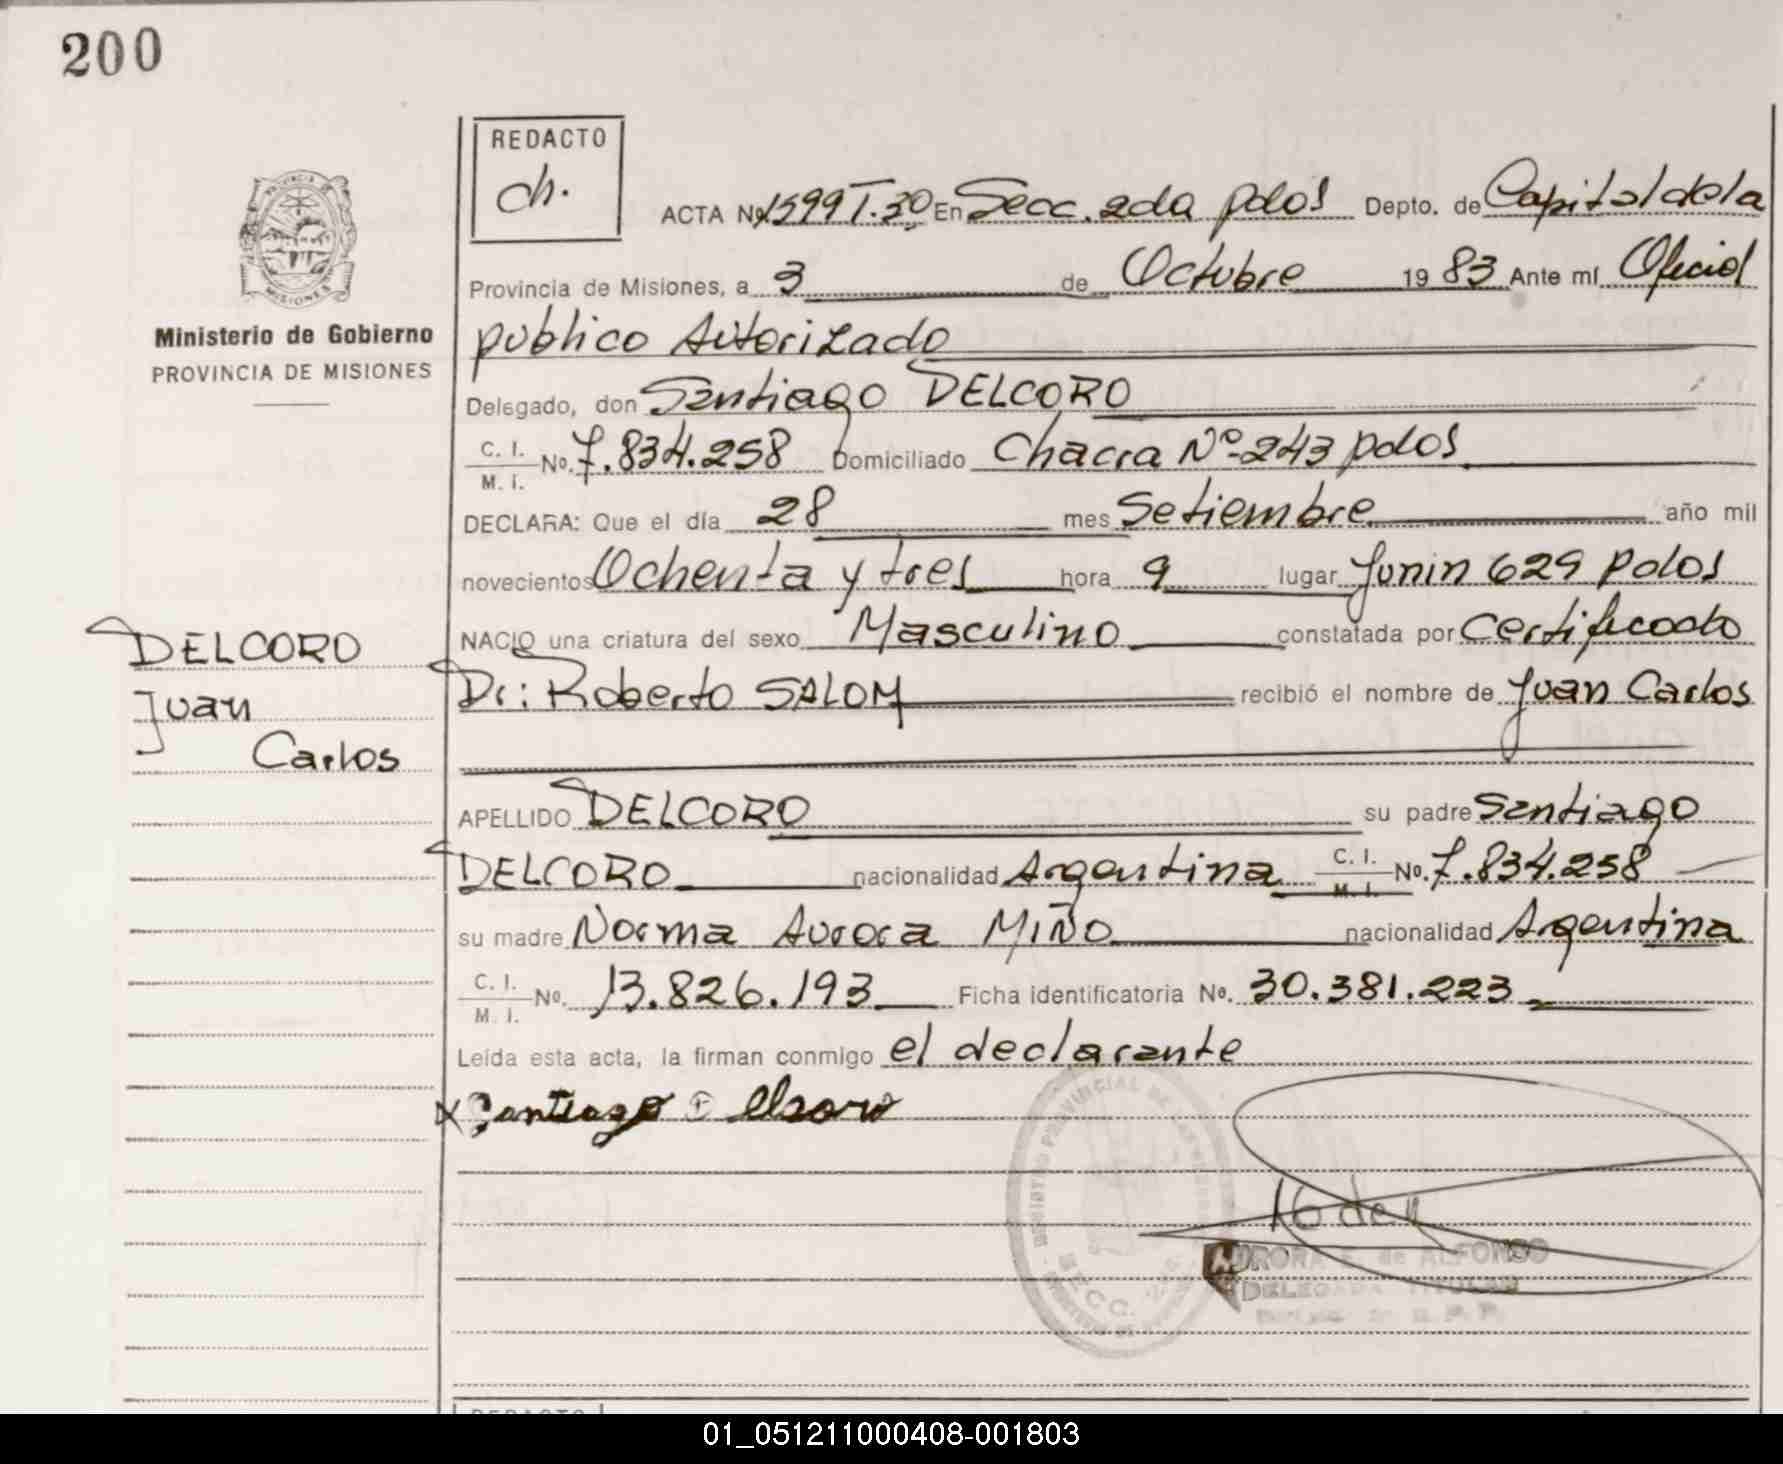 200
REDACTO
ch.
PROVINCIA DE
MISIONES
Ministerio de Gobierno
PROVINCIA DE MISIONES
ACTA Nº 1599 T.30 En Secc. 2da pdas Depto. de Capital de la
Provincia de Misiones, a 3 de Octubre 19 83 Ante mí Oficial
publico Autorizado
Delegado, don Santiago DELCORO
C. I. M. I. No. 7.834.258 Domiciliado Chacra Nº 243 pdas
DECLARA: Que el día 28 mes Setiembre año mil
novecientos Ochenta y tres hora 9 lugar Junin 629 pdas
NACIO una criatura del sexo Masculino constatada por Certificado
Dr: Roberto SALOM recibió el nombre de Juan Carlos
DELCORO
Juan
Carlos
APELLIDO DELCORO su padre Santiago
DELCORO nacionalidad Argentina C. I. M. I. No. 7.834.258
su madre Norma Aurora MIÑO nacionalidad Argentina
C. I. M. I. No. 13.826.193 Ficha identificatoria No. 30.381.223
Leída esta acta, la firman conmigo el declarante
x Santiago Delcoro
REGISTRO PROVINCIAL DE LAS PERSONAS
SECC. 2da
AURORA E. de ALFONSO
DELEGADA TITULAR
REDACTO
01_051211000408-001803